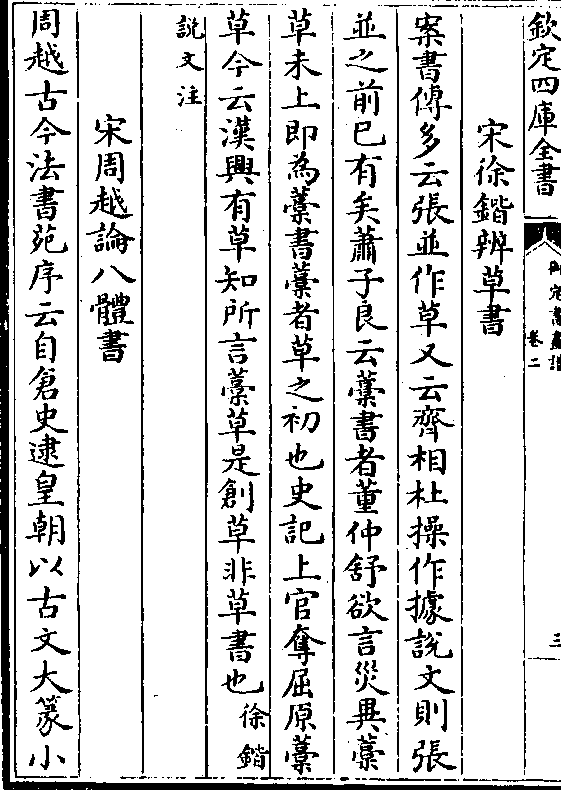 欽定四庫全書
御定書畫譜
卷二
三
宋徐鍇辨草書
案書傳多云張並作草又云齊相杜操作據說文則張
並之前已有矣蕭子良云藁書者董仲舒欲言災異藁
草未上即為藁書藁者草之初也史記上官奪屈原藁
草今云漢興有草知所言藁草是創草非草書也徐鍇
說文注
宋周越論八體書
周越古今法書苑序云自倉史逮皇朝以古文大篆小